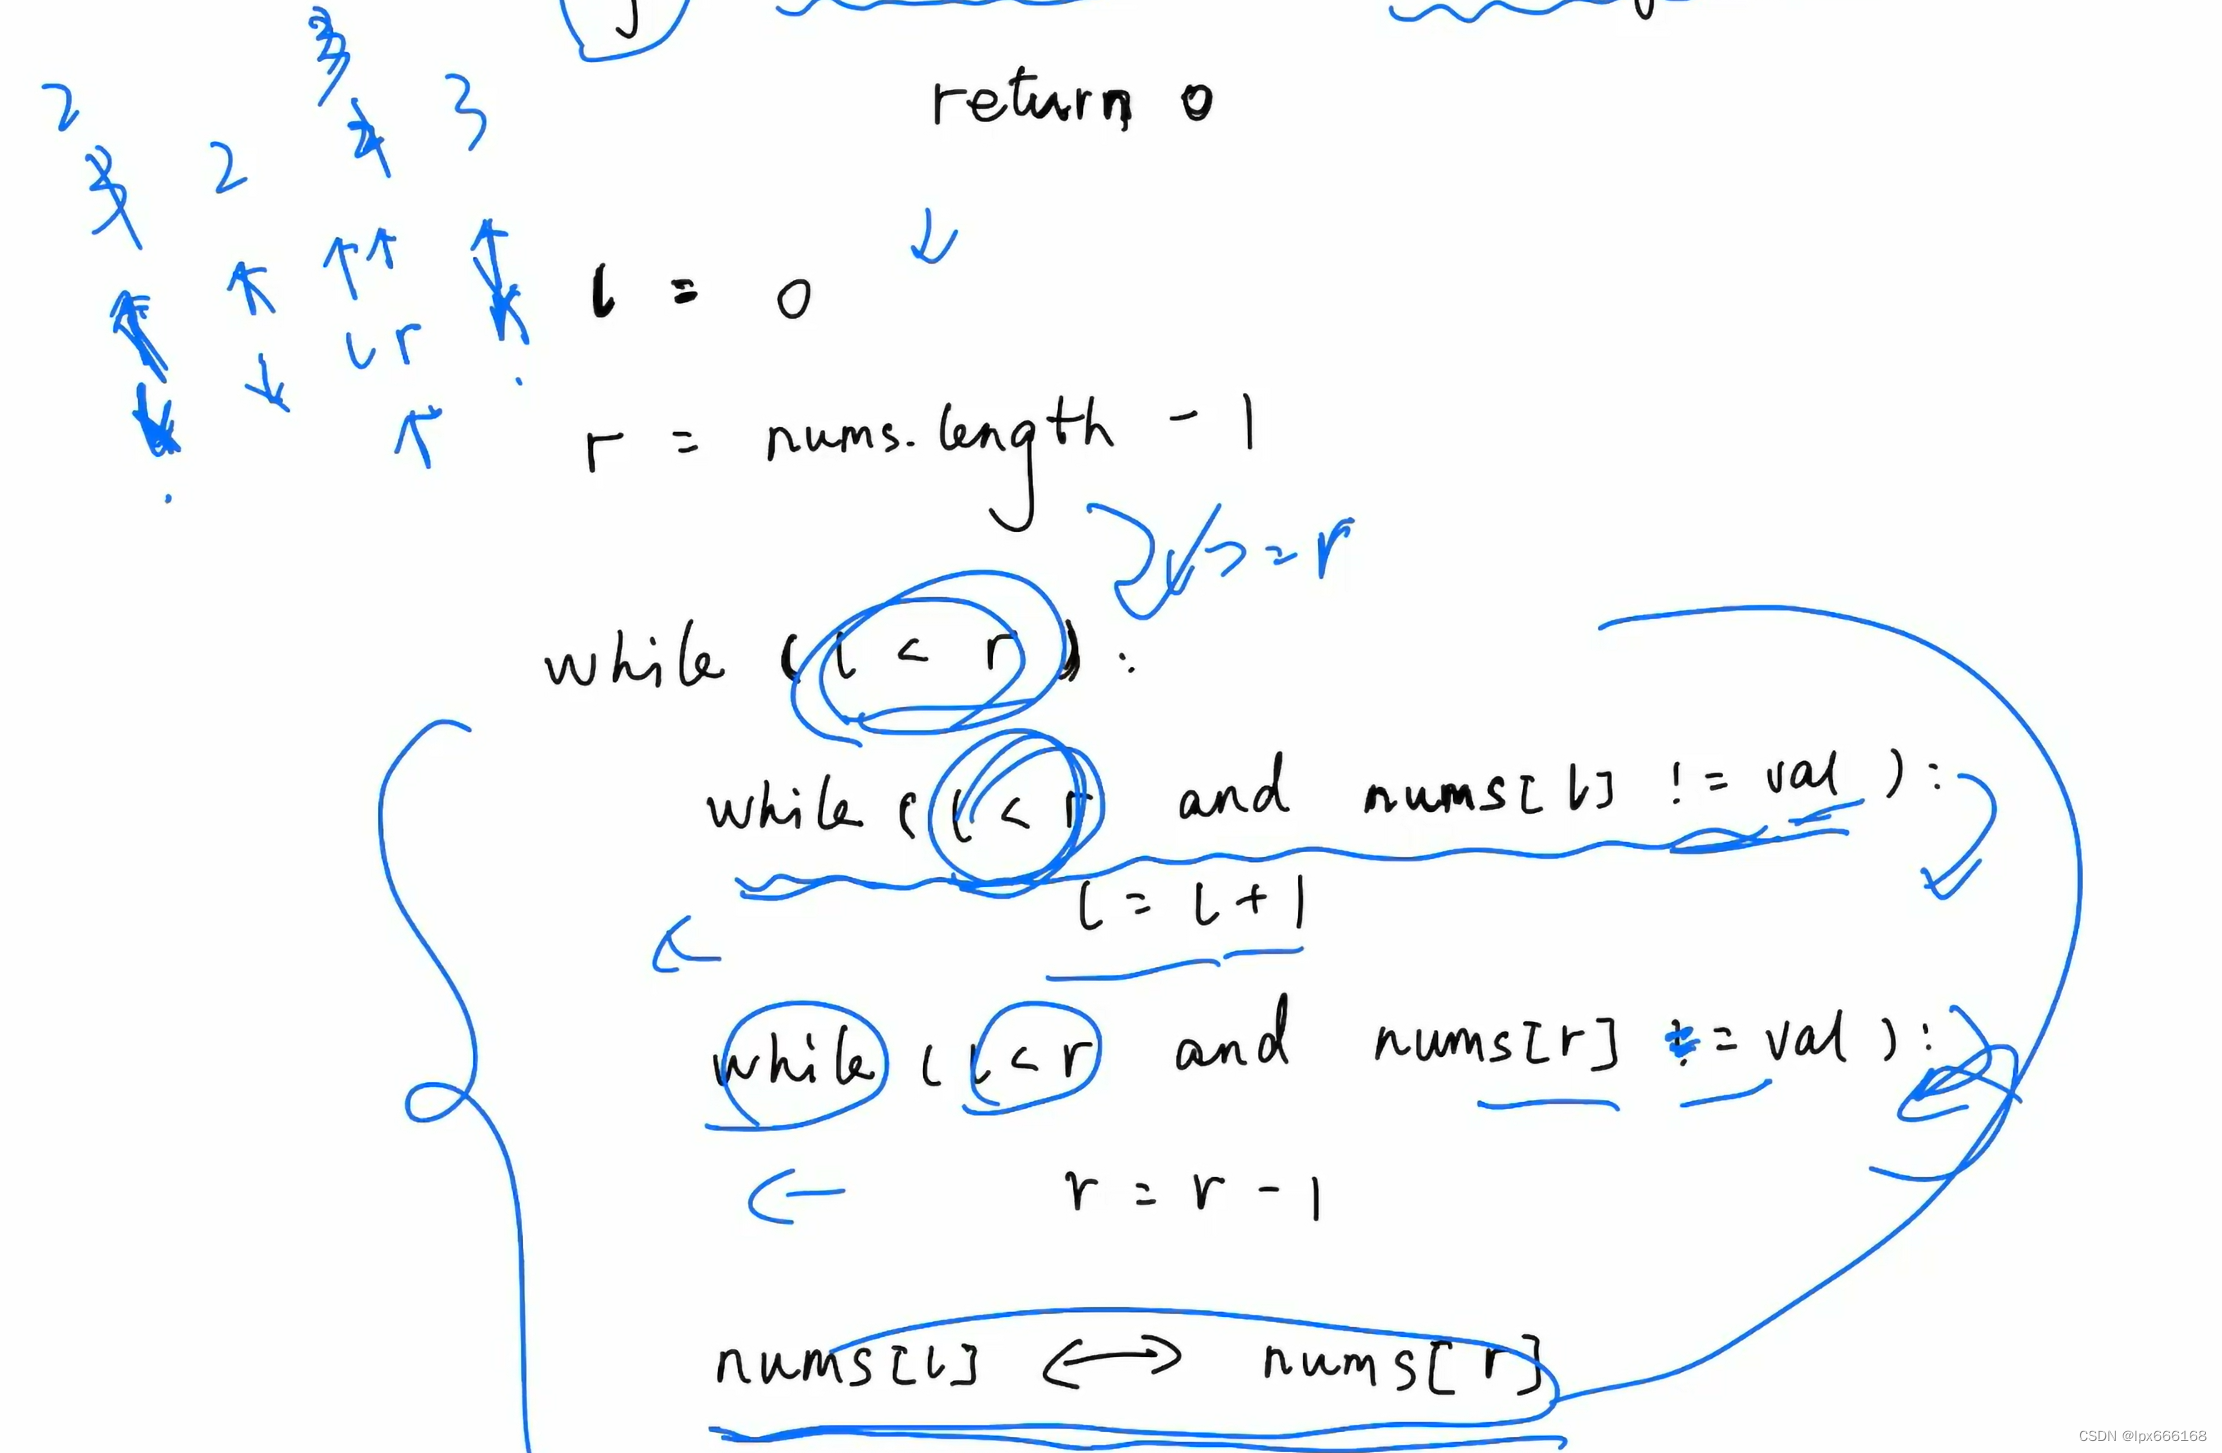 return 0
2
3
2
3
l = 0
l r
r = nums.length - 1
l >= r
while (l < r):
while (l < r and nums[l] != val):
l = l + 1
while (l < r and nums[r] = val):
r = r - 1
nums[l] <-> nums[r]
CSDN @lpx666168